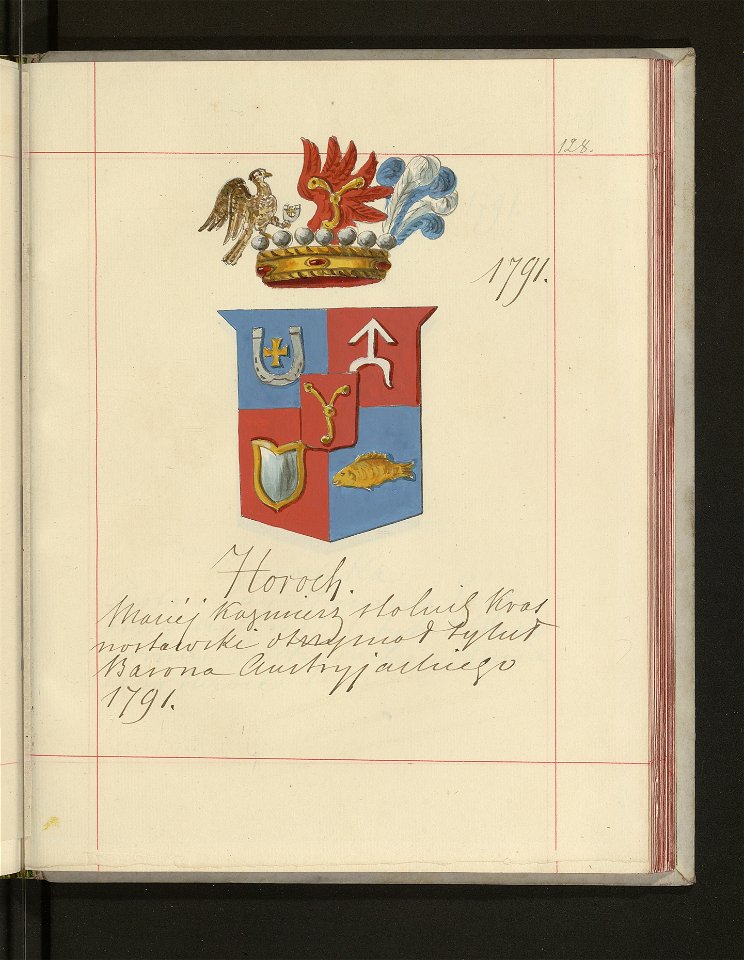 128.
1791.
Horoch.
Maciéj Kazimierz stolnik Kras
nostawski otrzymał tytuł
Barona Austryjackiego
1791.